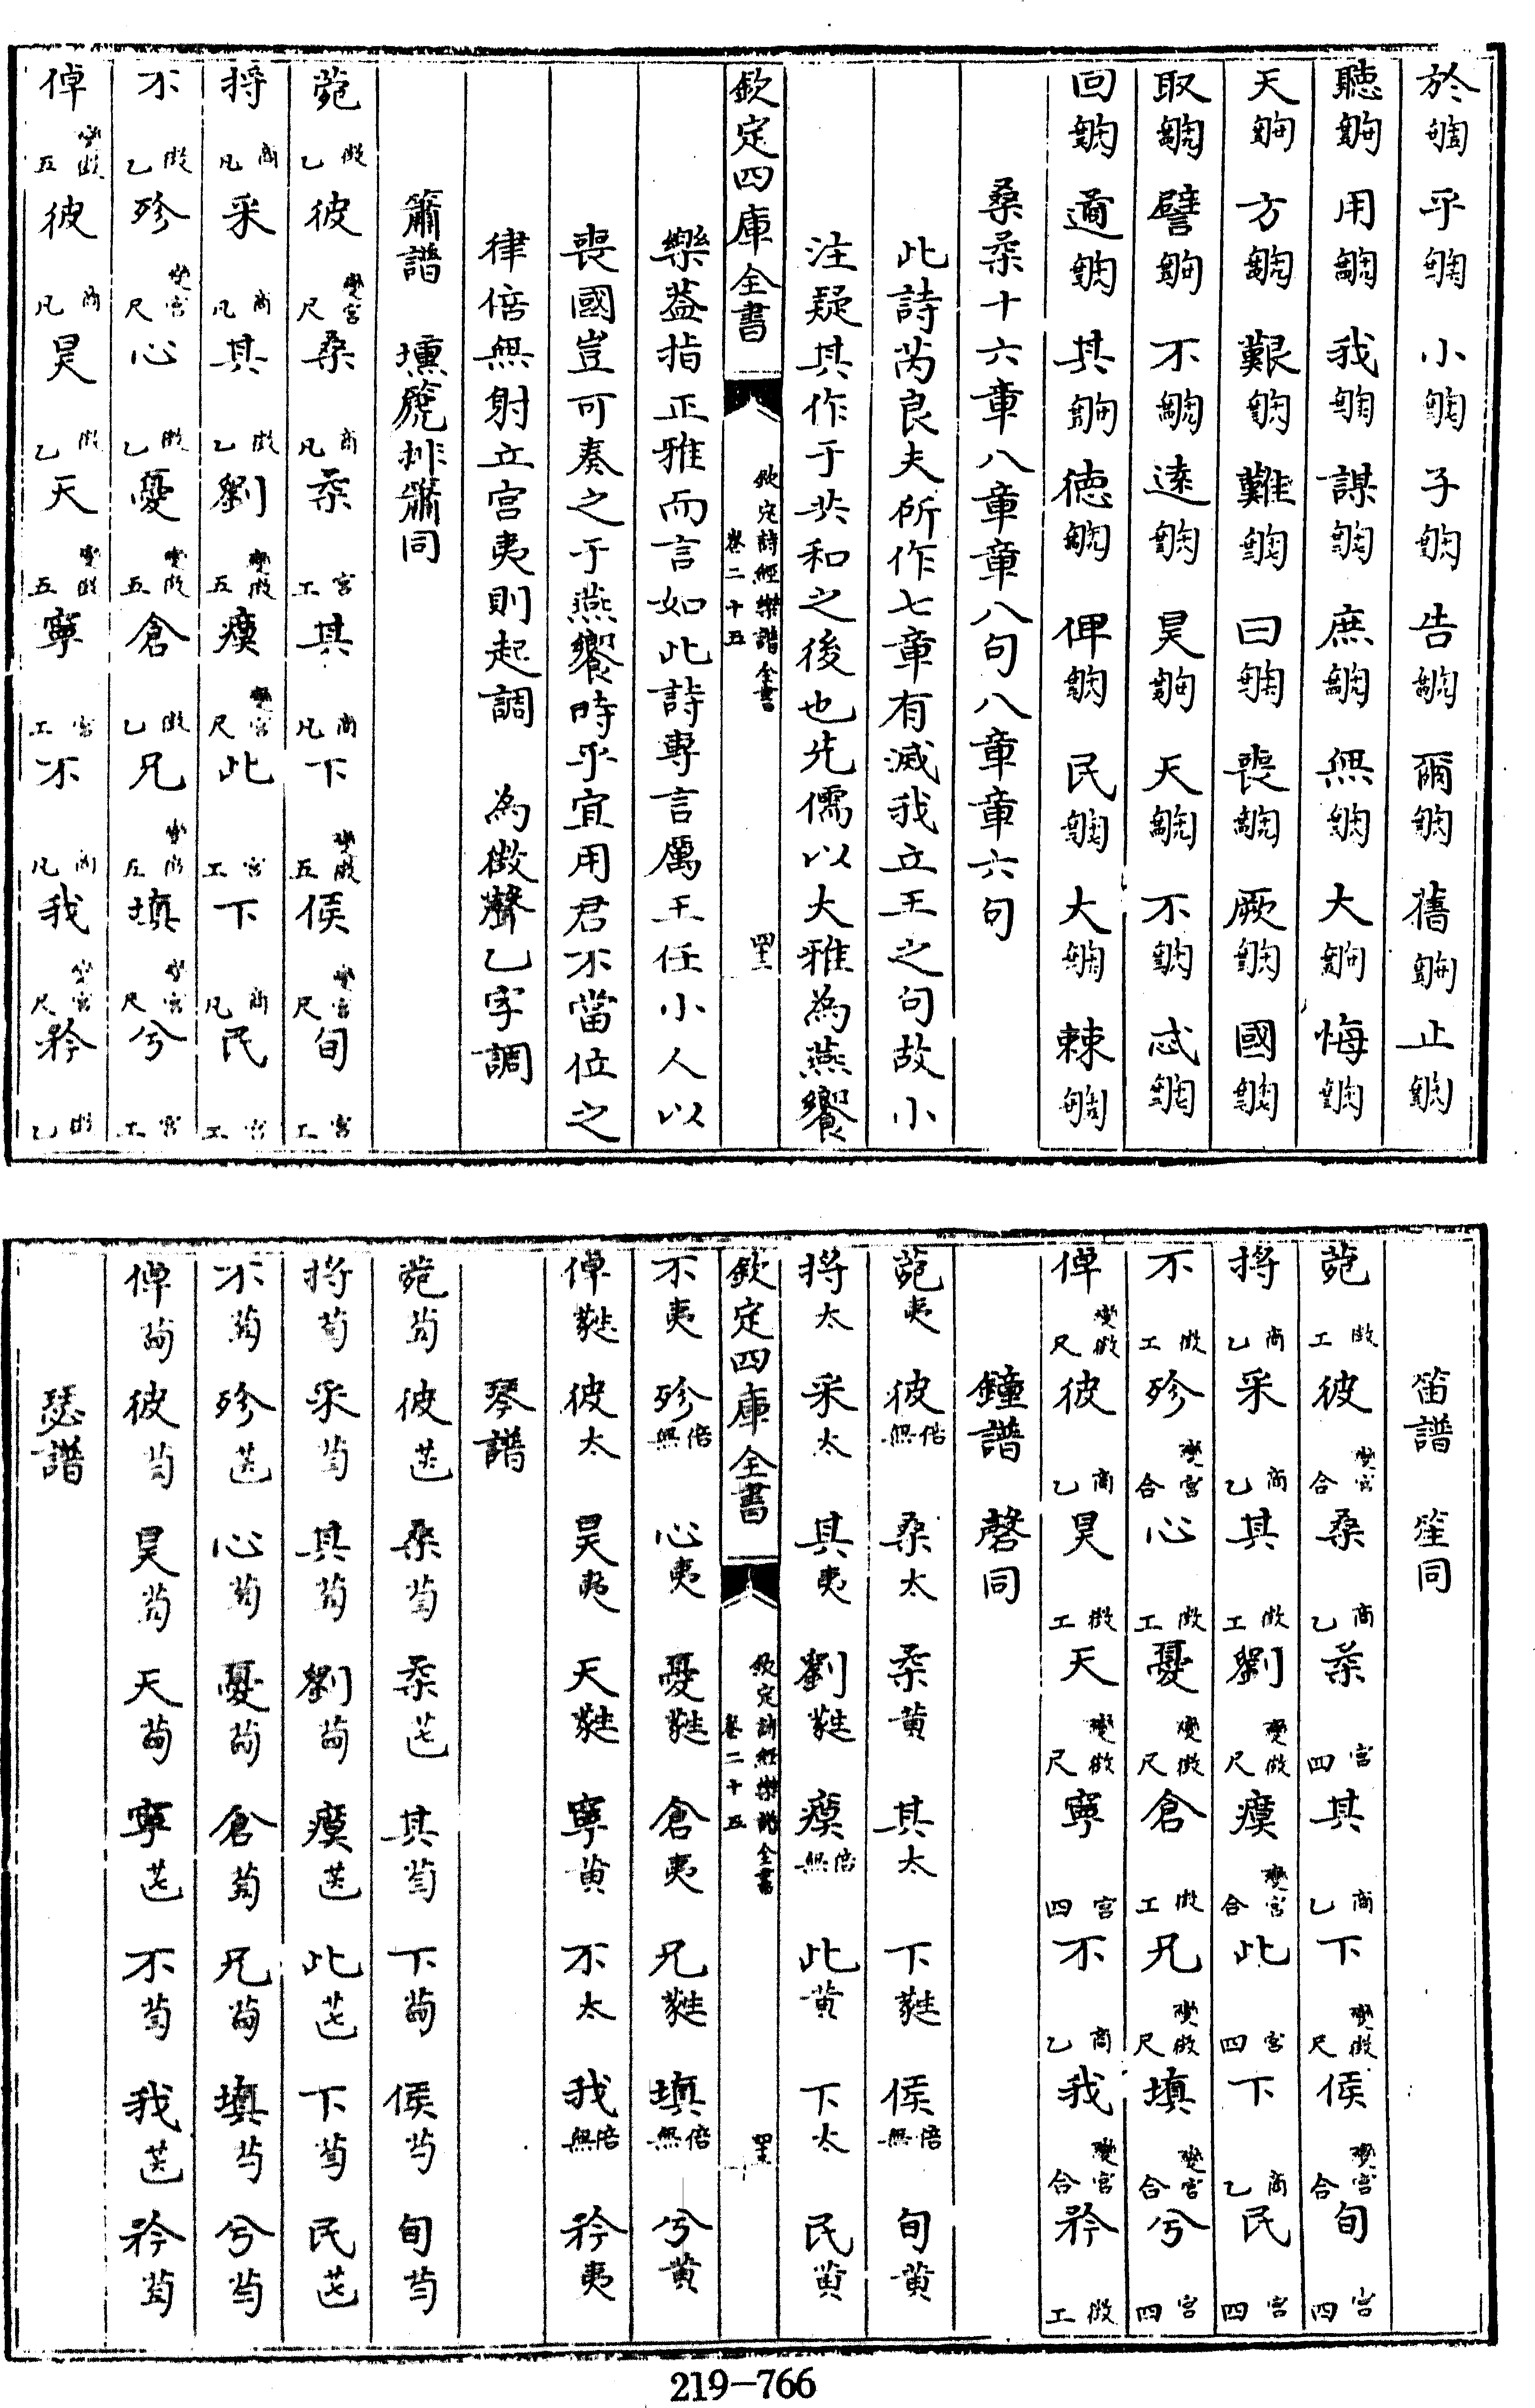 於乎小子告爾舊止
聽用我謀庶無大悔
天方艱難曰喪厥國
取譬不逺昊天不忒
回遹其徳俾民大棘
桑柔十六章八章章八句八章章六句
此詩芮良夫所作七章有滅我立王之句故小
注疑其作于共和之後也先儒以大雅為燕饗
欽定四庫全書 欽定詩經樂譜全書 卷二十五
樂葢指正雅而言如此詩專言厲王任小人以
喪國豈可奏之于燕饗時乎宜用君不當位之
律倍無射立宫夷則起調 為徵聲乙字調
簫譜 壎篪排簫同
菀徵乙 彼變宮尺 桑商凡 柔宮工 其商凡 下變徵五 侯變宮尺 旬宮工
捋商凡 采商凡 其徵乙 劉變徵五 瘼變宮尺 此宮工 下商凡 民宮工
不徵乙 殄變宮尺 心徵乙 憂變徵五 倉徵乙 兄變徵五 填變宮尺 兮宮工
倬變徵五 彼商凡 昊徵乙 天變徵五 寧宮工 不商凡 我變宮尺 矜徵乙
笛譜 笙同
菀徵工 彼變宮合 桑商乙 柔宮四 其商乙 下變徵尺 侯變宮合 旬宮四
捋商乙 采商乙 其徵工 劉變徵尺 瘼變宮合 此宮四 下商乙 民宮四
不徵工 殄變宮合 心徵工 憂變徵尺 倉徵工 兄變徵尺 填變宮合 兮宮四
倬變徵尺 彼商乙 昊徵工 天變徵尺 寧宮四 不商乙 我變宮合 矜徵工
鐘譜 磬同
菀夷 彼倍無 桑太 柔黄 其太 下蕤 侯倍無 旬黄
捋太 采太 其夷 劉蕤 瘼倍無 此黄 下太 民黄
欽定四庫全書 欽定詩經樂譜全書 卷二十五
不夷 殄倍無 心夷 憂蕤 倉夷 兄蕤 填倍無 兮黄
倬蕤 彼太 昊夷 天蕤 寧黄 不太 我倍無 矜夷
琴譜
菀彼桑柔其下侯旬
捋采其劉瘼此下民
不殄心憂倉兄填兮
倬彼昊天寧不我矜
瑟譜
219-766